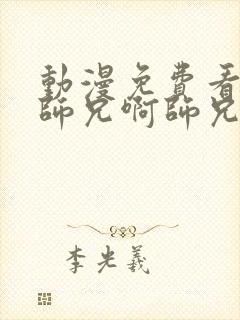 動漫免費看
師兄啊師兄
李光羲